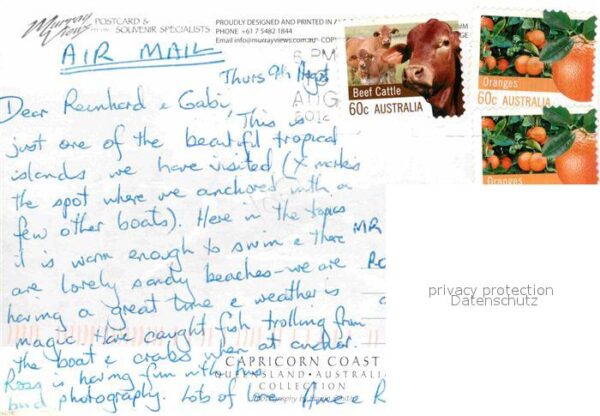 Murray Views
POSTCARD &
SOUVENIR SPECIALISTS
PROUDLY DESIGNED AND PRINTED IN
PHONE +61 7 5482 1844
Email info@murrayviews.com.au
AIR MAIL
6 PM
AUG
Thurs 9th August
Beef Cattle
60c AUSTRALIA
Oranges
60c AUSTRALIA
Oranges
Dear Reinhard & Gabi,
This is
just one of the beautiful tropical
islands we have visited (X marks
the spot where we anchored with a
few other boats). Here in the tropics
it is warm enough to swim & there
are lovely sandy beaches - we are
having a great time & weather is
magic. Have caught fish trolling from
the boat & crabs when at anchor.
Ross is having fun with his
bird photography. Lots of love
MR
privacy protection
Datenschutz
CAPRICORN COAST
QUEENSLAND · AUSTRALIA
COLLECTION